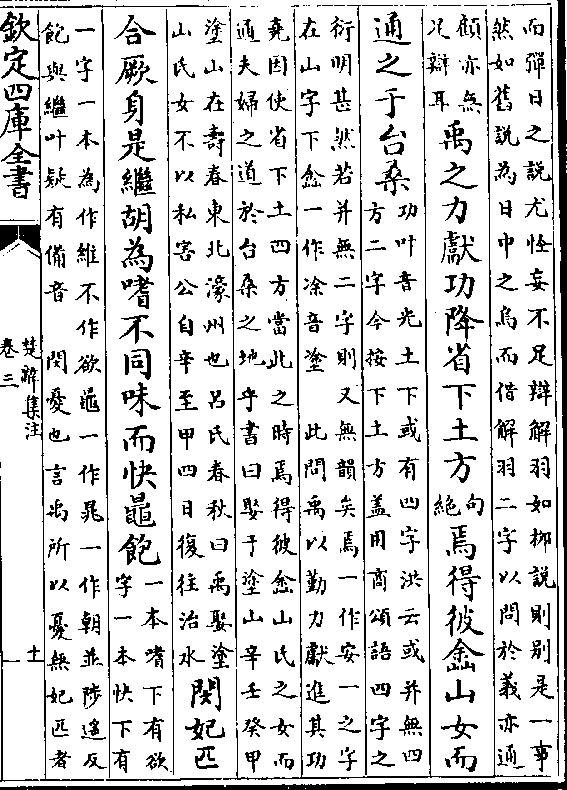 而彈日之說尤怪妄不足辯解羽如栁說則别是一事
然如舊說為日中之烏而借解羽二字以問於義亦通
顧亦無
足辯耳
禹之力獻功降省下土方
句
絶
焉得彼嵞山女而
通之于台桑
功叶音光土下或有四字洪云或并無四
方二字今按下土方蓋用商頌語四字之
衍明甚然若并無二字則又無韻矣焉一作安一之字
在山字下嵞一作凃音塗 此問禹以勤力獻進其功
堯因使省下土四方當此之時焉得彼嵞山氏之女而
通夫婦之道於台桑之地乎書曰娶于塗山辛壬癸甲
塗山在壽春東北濠州也吕氏春秋曰禹娶塗
山氏女不以私害公自辛至甲四日復往治水
閔妃匹
合厥身是繼胡為嗜不同味而快鼂飽
一本嗜下有欲
字一本快下有
一字一本為作維不作欲鼂一作晁一作朝並陟遥反
飽與繼叶疑有備音 閔憂也言禹所以憂無妃匹者
欽定四庫全書
楚辭集注
卷三
十一